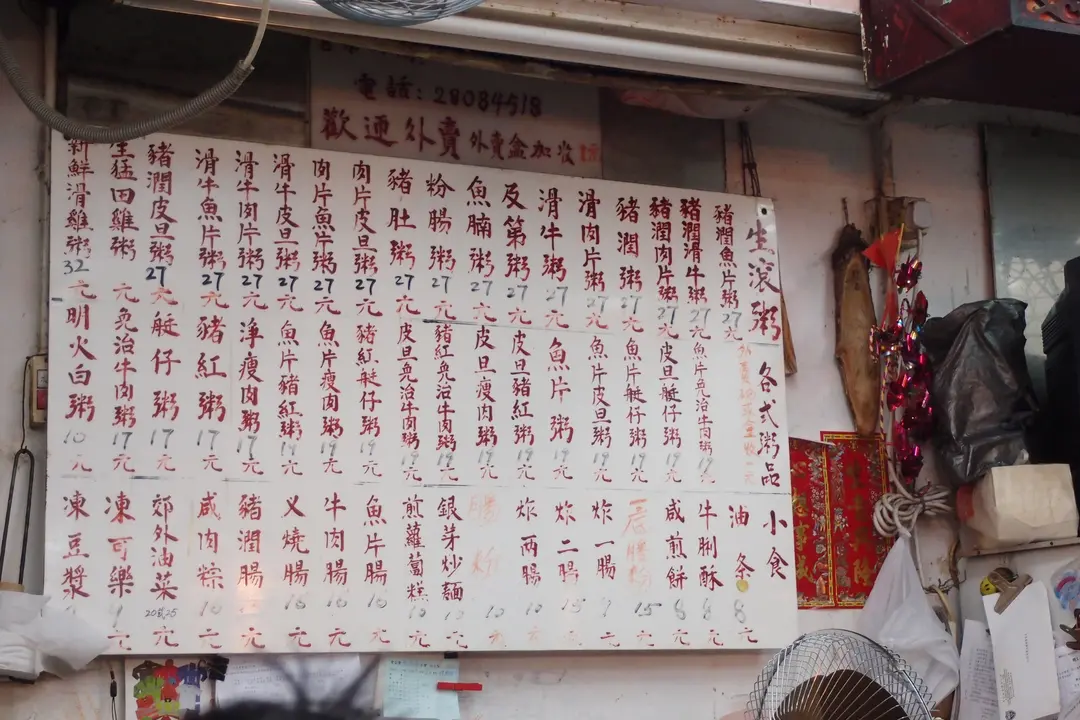 電話：28084518
歡迎外賣 外賣盒加收
生滾粥
豬潤魚片粥 27元
豬潤滑牛粥 27元
豬潤肉片粥 27元
豬潤粥 27元
滑肉片粥 27元
滑牛粥 27元
反第粥 27元
魚腩粥 27元
粉腸粥 27元
豬肚粥 27元
肉片皮旦粥 27元
肉片魚片粥 27元
滑牛皮旦粥 27元
滑牛肉片粥 27元
滑牛魚片粥 27元
豬潤皮旦粥 27元
生猛田雞粥 元
新鮮滑雞粥 32元
各式粥品
魚片免治牛肉粥 19元
皮旦艇仔粥 19元
魚片艇仔粥 19元
魚片皮旦粥 19元
魚片粥 19元
皮旦豬紅粥 19元
皮旦瘦肉粥 19元
豬紅免治牛肉粥 19元
皮旦免治牛肉粥 19元
豬紅艇仔粥 19元
魚片瘦肉粥 19元
魚片豬紅粥 19元
淨瘦肉粥 17元
豬紅粥 17元
艇仔粥 17元
免治牛肉粥 17元
明火白粥 10元
小食
油条 8元
牛脷酥 8元
咸煎餅 8元
腸粉 15元
炸一腸 9元
炸二腸 15元
炸两腸 10元
腸粉 10元
銀芽炒麵 10元
煎蘿蔔糕 10元
魚片腸 16元
牛肉腸 16元
义燒腸 16元
豬潤腸 元
咸肉粽 16元
郊外油菜 20或25元
凍可樂 9元
凍豆漿 元